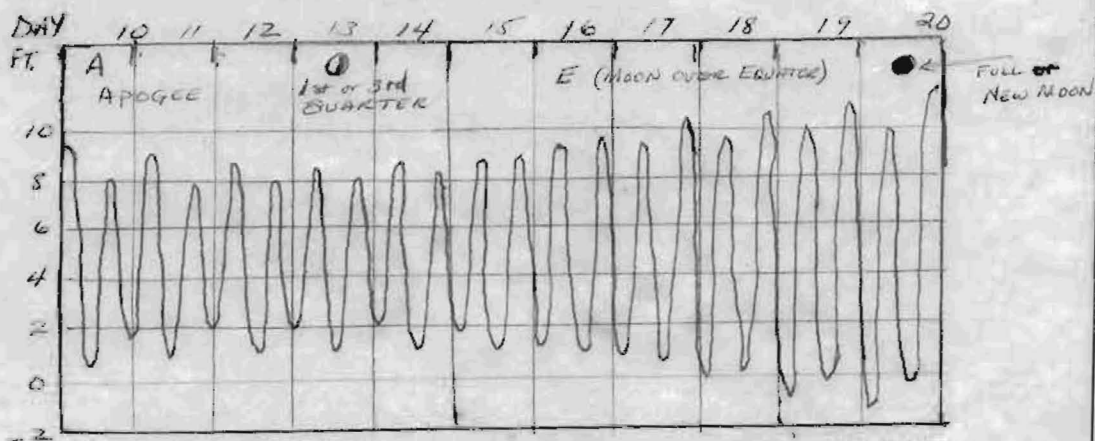 DAY 10 11 12 13 14 15 16 17 18 19 20
FT.
A
APOGEE
1st or 3rd
QUARTER
E (MOON OVER EQUATOR)
FULL OR
NEW MOON
10
8
6
4
2
0
2